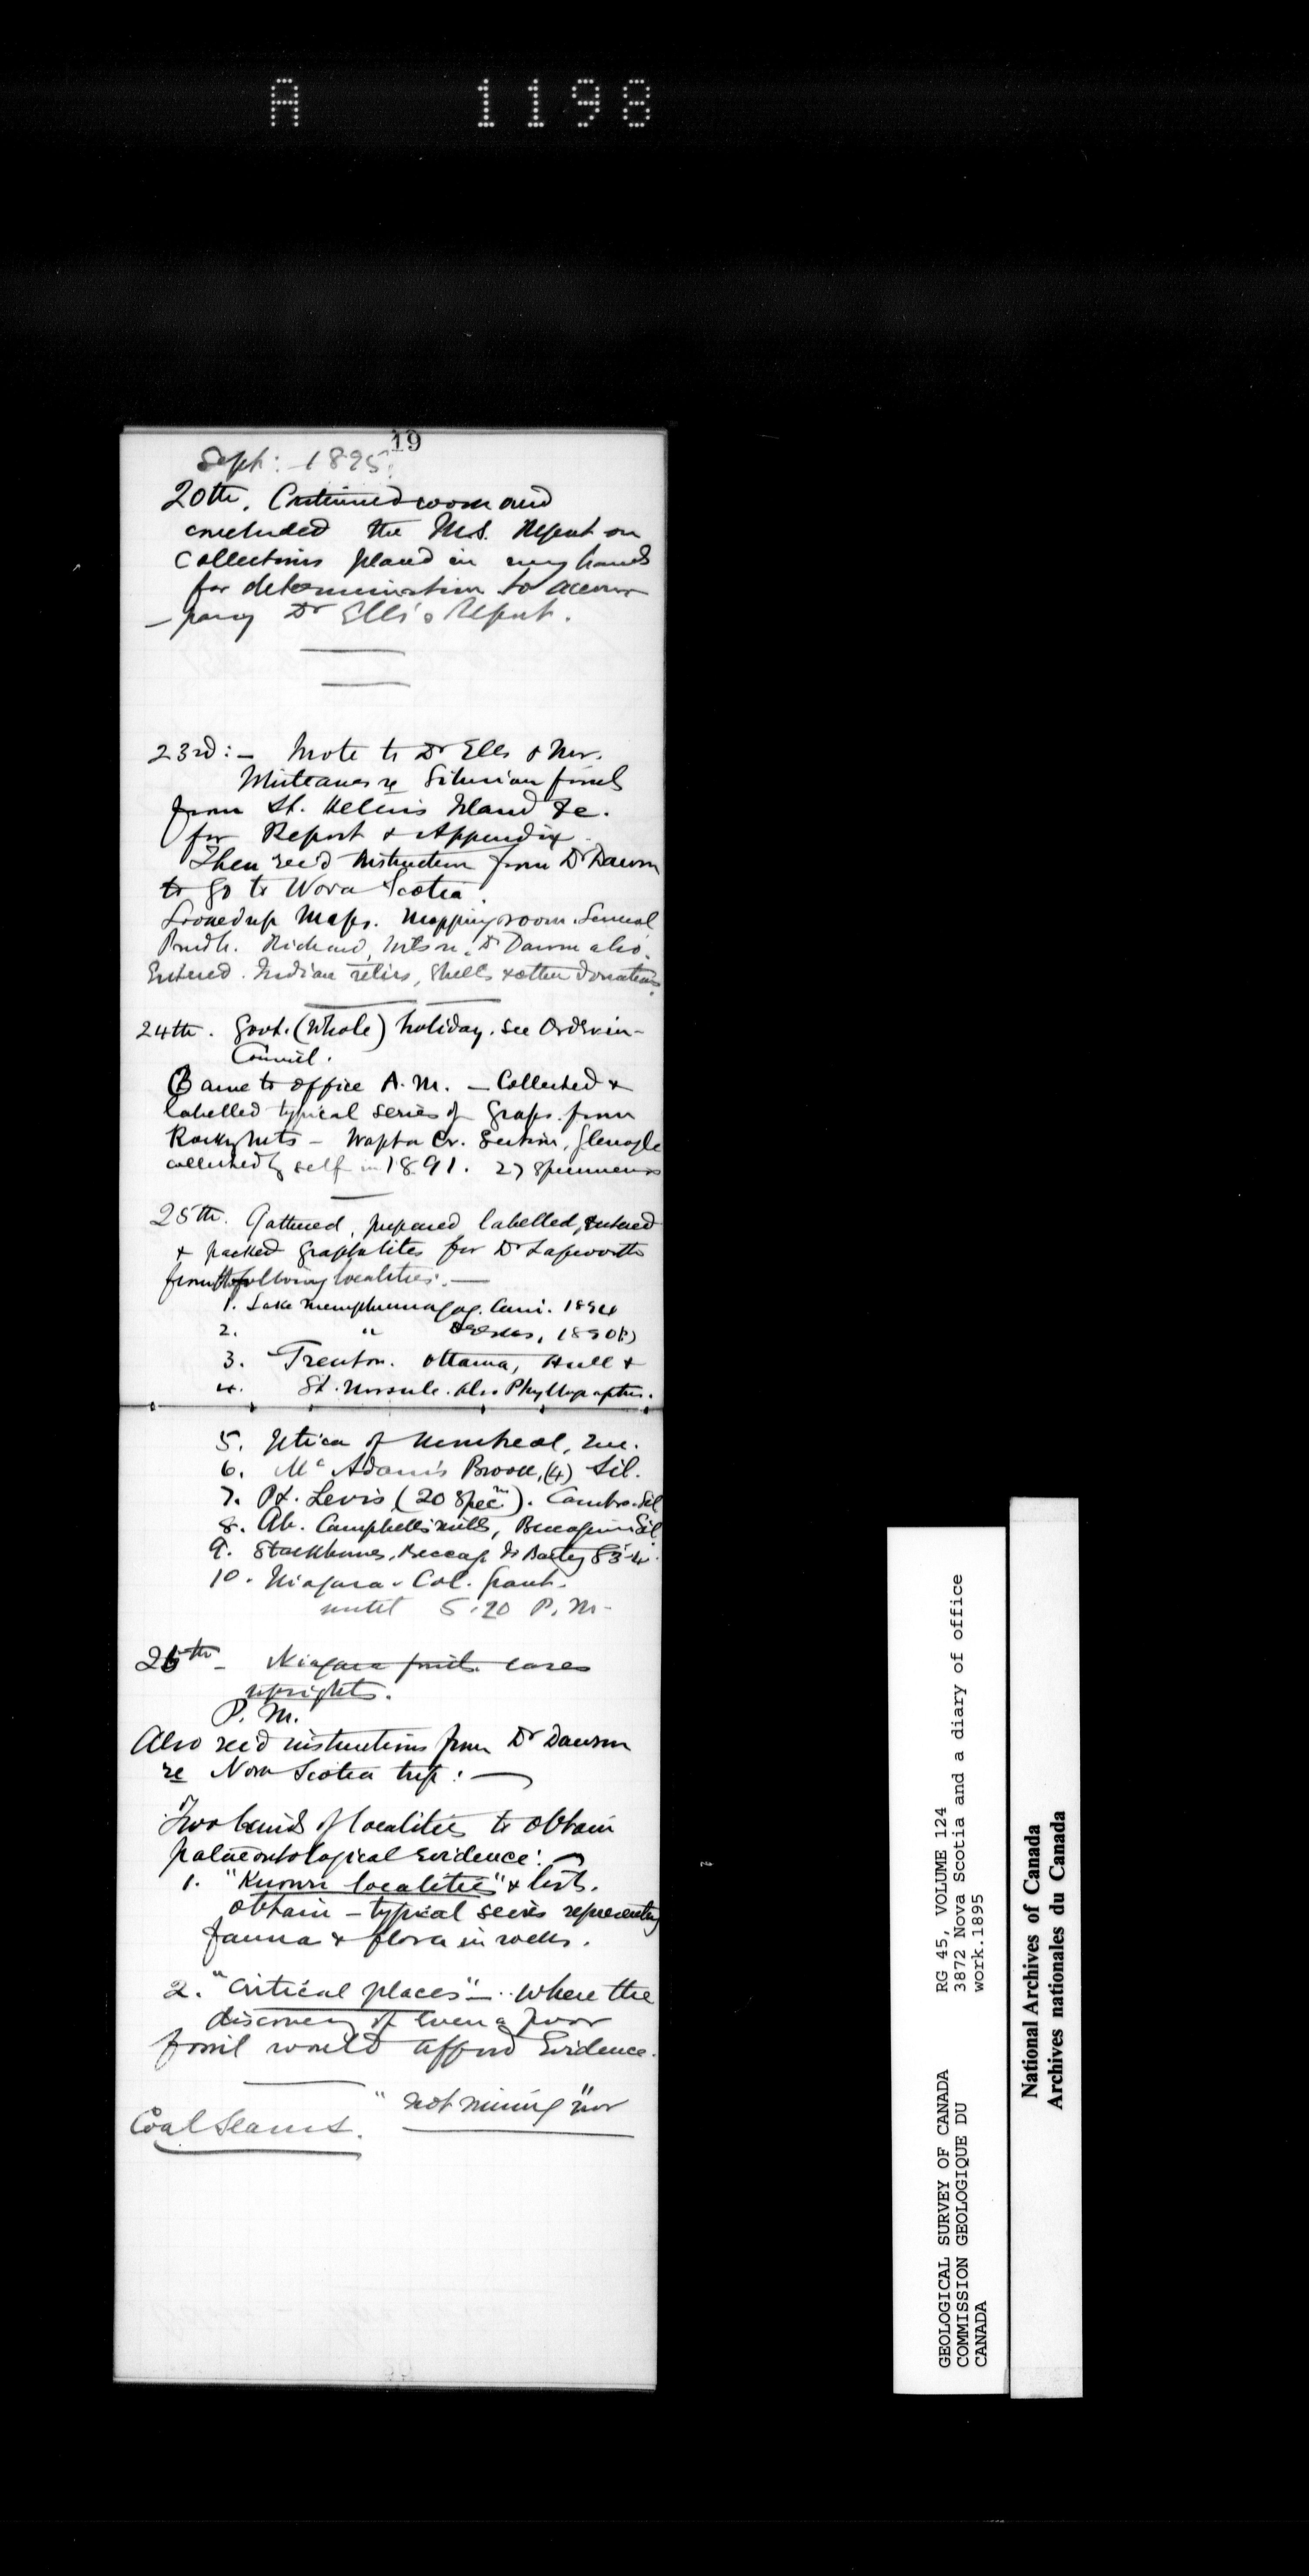 A 1198
19
Sept: 1895.
20th. Continued work and
concluded the M.S. Report on
Collections placed in my hands
for determination to accom-
-pany Dr Ells's Report.
23rd:- Wrote to Dr Ells & Mr.
re Silurian fossils
from St. Helen's Island &c.
for Report & Appendix.
Then rec'd instruction from Dr Dawson
to go to Nova Scotia.
Looked up Maps. Mapping room.
Richard, Dr Dawson also.
Entered Indian relics, shells & other donations.
24th. Govt. (whole) holiday. See Order-in-
Council.
Came to office A.M. - Collected &
labelled typical series of Graps. from
Rocky Mts - Wapta Cr. Section, Glenogle
collected by self in 1891. 27 specimens
25th. Gathered, prepared labelled, entered
& packed graptolites for Dr Lapworth
from the following localities:-
1. Lake Memphremagog. 1894
2. " 1890(?)
3. Trenton. Ottawa, Hull &
4. St. also Phyllograptus.
5. Utica of Montreal, Que.
6. Mc Adam's Brook, (4) Sil.
7. Pt. Levis (20 specns). Cambro-Sil
8. Ab. Campbell's mills, Sil
9. Stackhouses, Beccag. Dr Bailey 83-4.
10. Niagara. Col. Grant.
until 5.20 P.M.
26th - Niagara fossils cases
uprights.
P.M.
Also rec'd instructions from Dr Dawson
re Nova Scotia trip:-
Two kinds of localities to obtain
palaeontological evidence:-
1. "Known localities" & lists.
obtain - typical series representing
fauna & flora in rocks.
2. "Critical places" - where the
discovery of even a poor
fossil would afford Evidence.
"not mining" nor
Coal Seams.
GEOLOGICAL SURVEY OF CANADA
COMMISSION GEOLOGIQUE DU
CANADA
RG 45, VOLUME 124
3872 Nova Scotia and a diary of office
work.1895
National Archives of Canada
Archives nationales du Canada